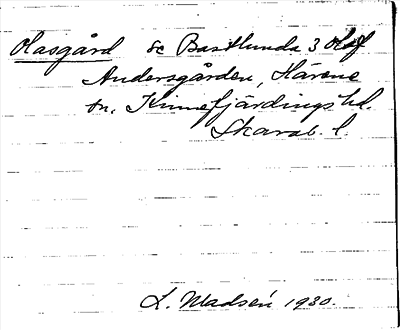 Hasgård sc Bastlunda 3 Haf
Andersgården, Härene
sn, Kinnefjärdings hd.
Skarab. l.
L. Madsén 1930.